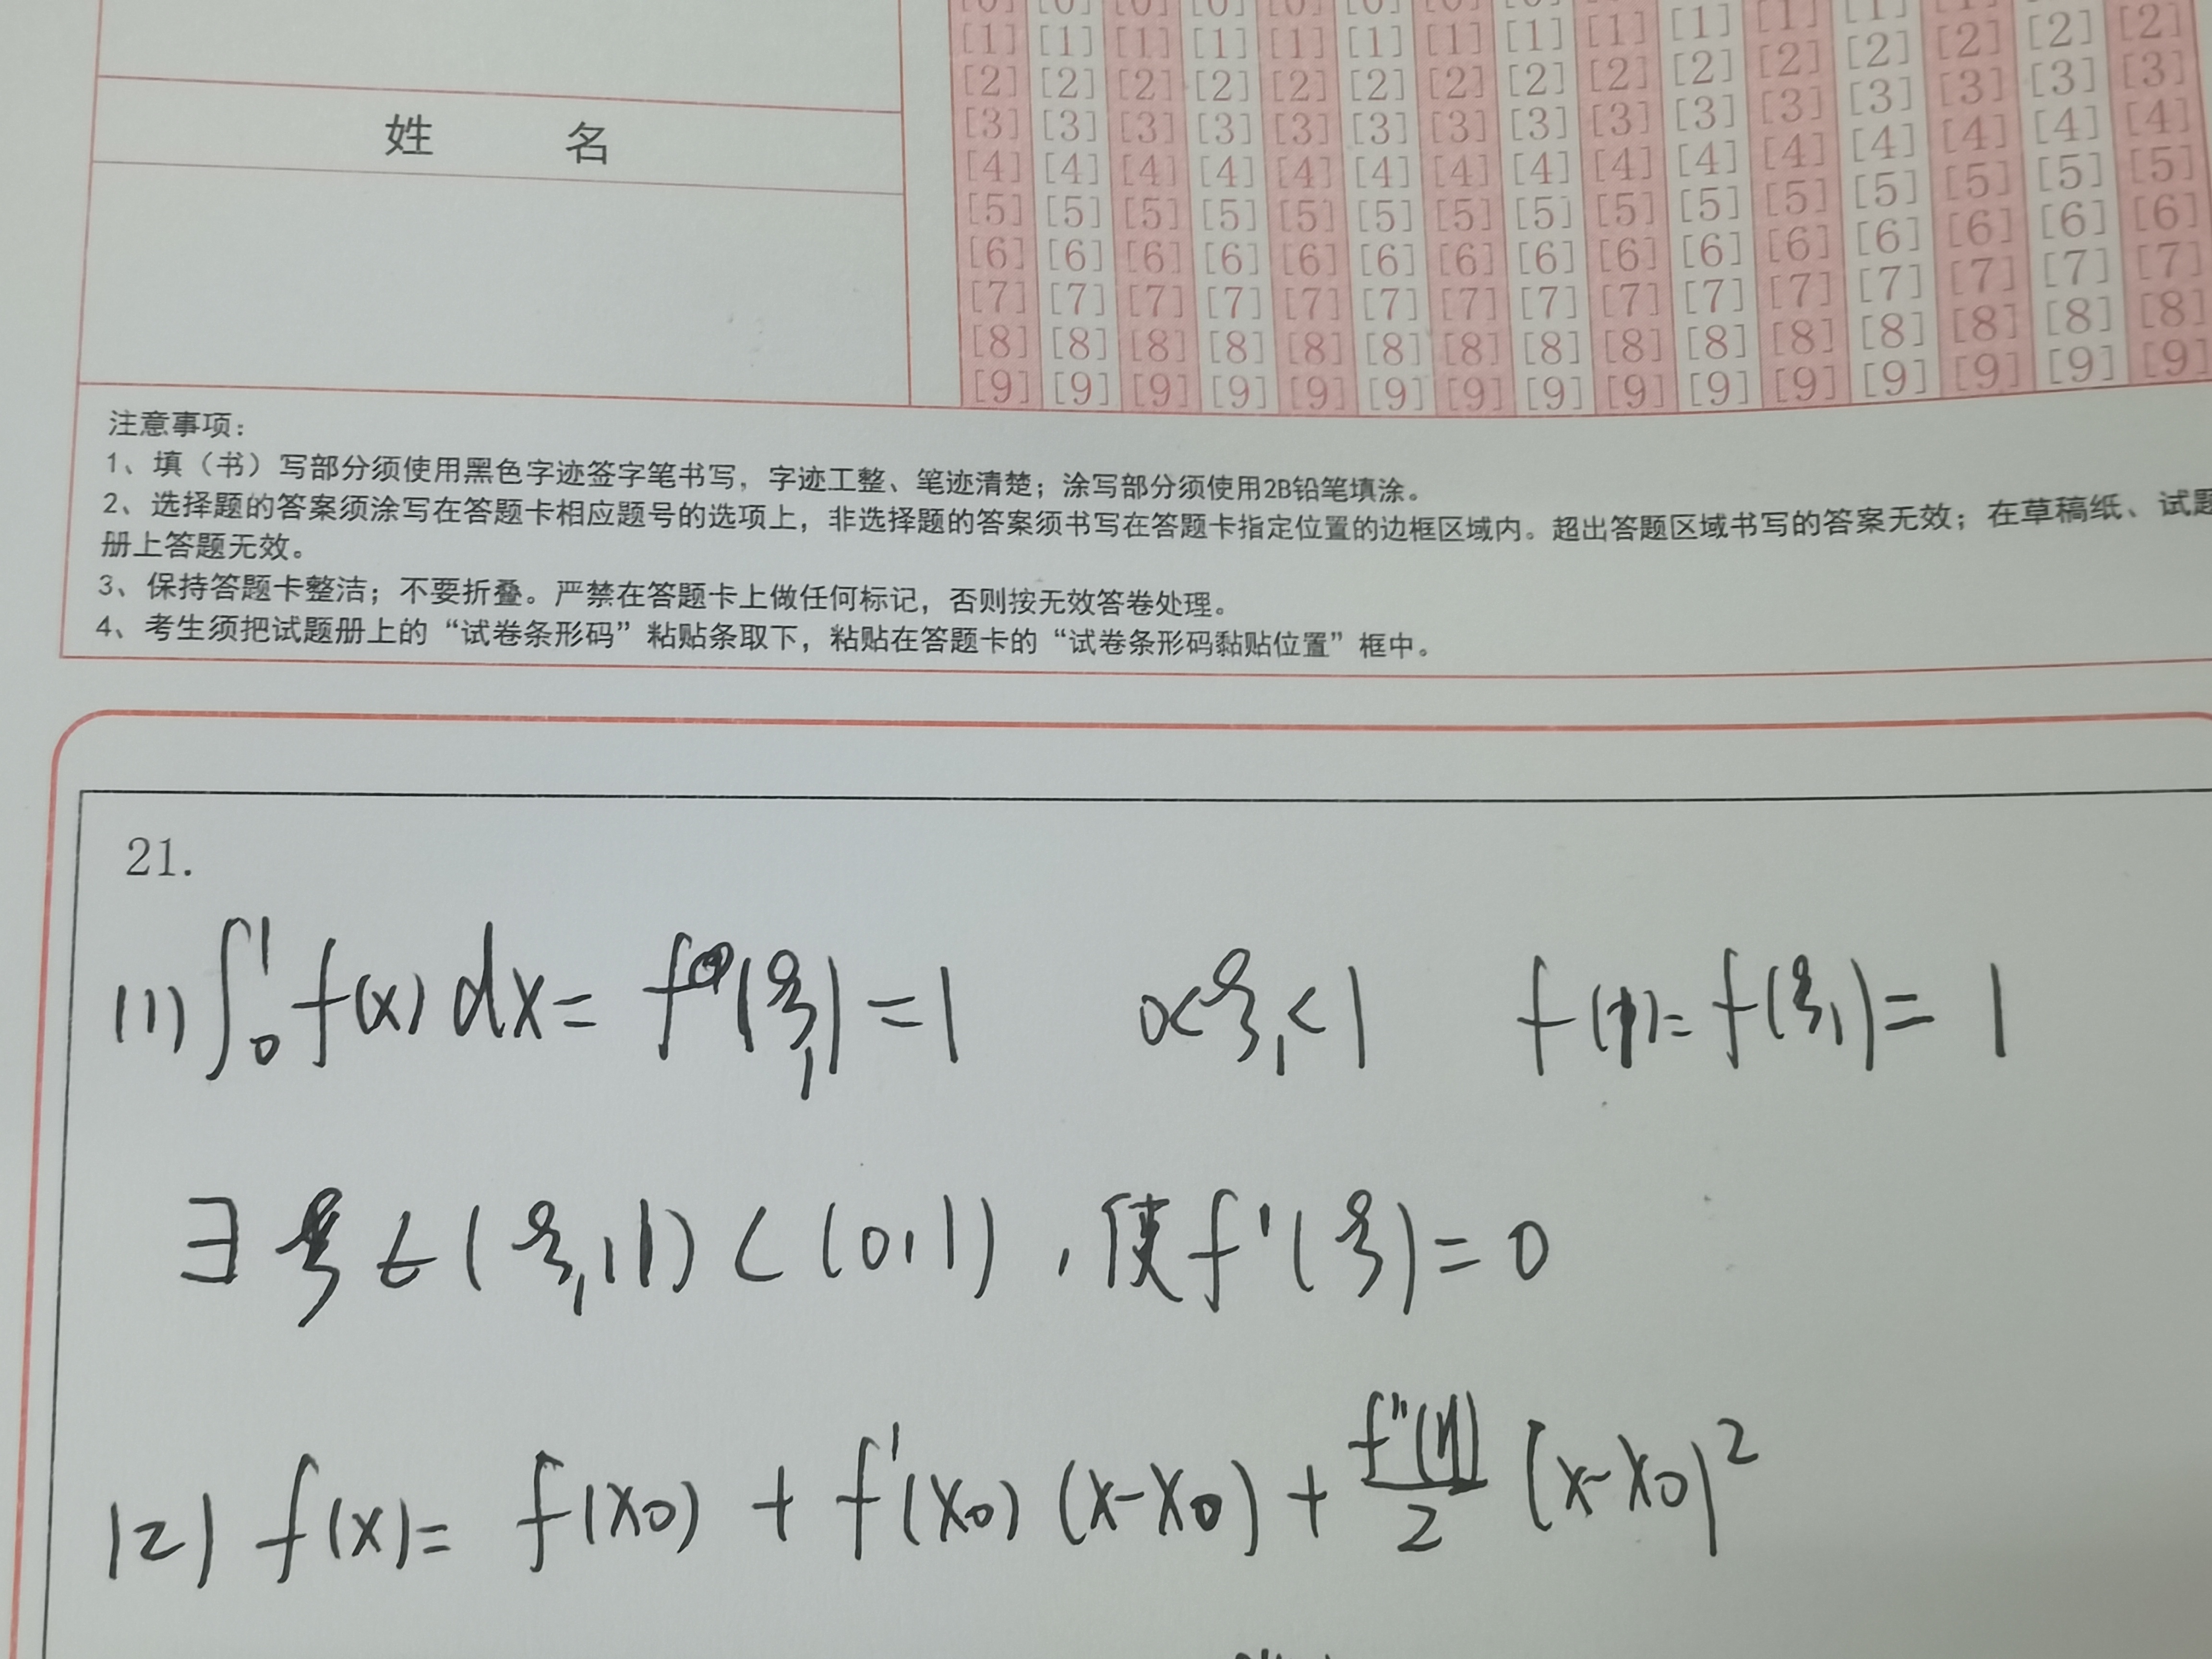 [0] [0] [0] [0] [0] [0] [0] [0] [1] [1] [1] [1] [1] [2] [2]
[1] [1] [1] [1] [1] [1] [1] [1] [1] [2] [2] [2] [2] [3] [3]
[2] [2] [2] [2] [2] [2] [2] [2] [2] [3] [3] [3] [3] [4] [4]
[3] [3] [3] [3] [3] [3] [3] [3] [3] [4] [4] [4] [4] [5] [5]
[4] [4] [4] [4] [4] [4] [4] [4] [4] [5] [5] [5] [5] [6] [6]
[5] [5] [5] [5] [5] [5] [5] [5] [5] [6] [6] [6] [6] [7] [7]
[6] [6] [6] [6] [6] [6] [6] [6] [6] [7] [7] [7] [7] [8] [8]
[7] [7] [7] [7] [7] [7] [7] [7] [7] [8] [8] [8] [8] [9] [9]
[8] [8] [8] [8] [8] [8] [8] [8] [8] [9] [9] [9] [9]
[9] [9] [9] [9] [9] [9] [9] [9] [9]
姓 名
注意事项：
1、填（书）写部分须使用黑色字迹签字笔书写，字迹工整、笔迹清楚；涂写部分须使用2B铅笔填涂。
2、选择题的答案须涂写在答题卡相应题号的选项上，非选择题的答案须书写在答题卡指定位置的边框区域内。超出答题区域书写的答案无效；在草稿纸、试题
册上答题无效。
3、保持答题卡整洁；不要折叠。严禁在答题卡上做任何标记，否则按无效答卷处理。
4、考生须把试题册上的“试卷条形码”粘贴条取下，粘贴在答题卡的“试卷条形码黏贴位置”框中。
21.
(1) ∫₀¹ f(x) dx = f(ξ₁) = 1 0<ξ₁<1 f(1) = f(ξ₁) = 1
∃ ξ ∈ (ξ₁,1) ⊂ (0,1) , 使 f'(ξ) = 0
(2) f(x) = f(x₀) + f'(x₀) (x-x₀) + f''(η)/2 (x-x₀)²